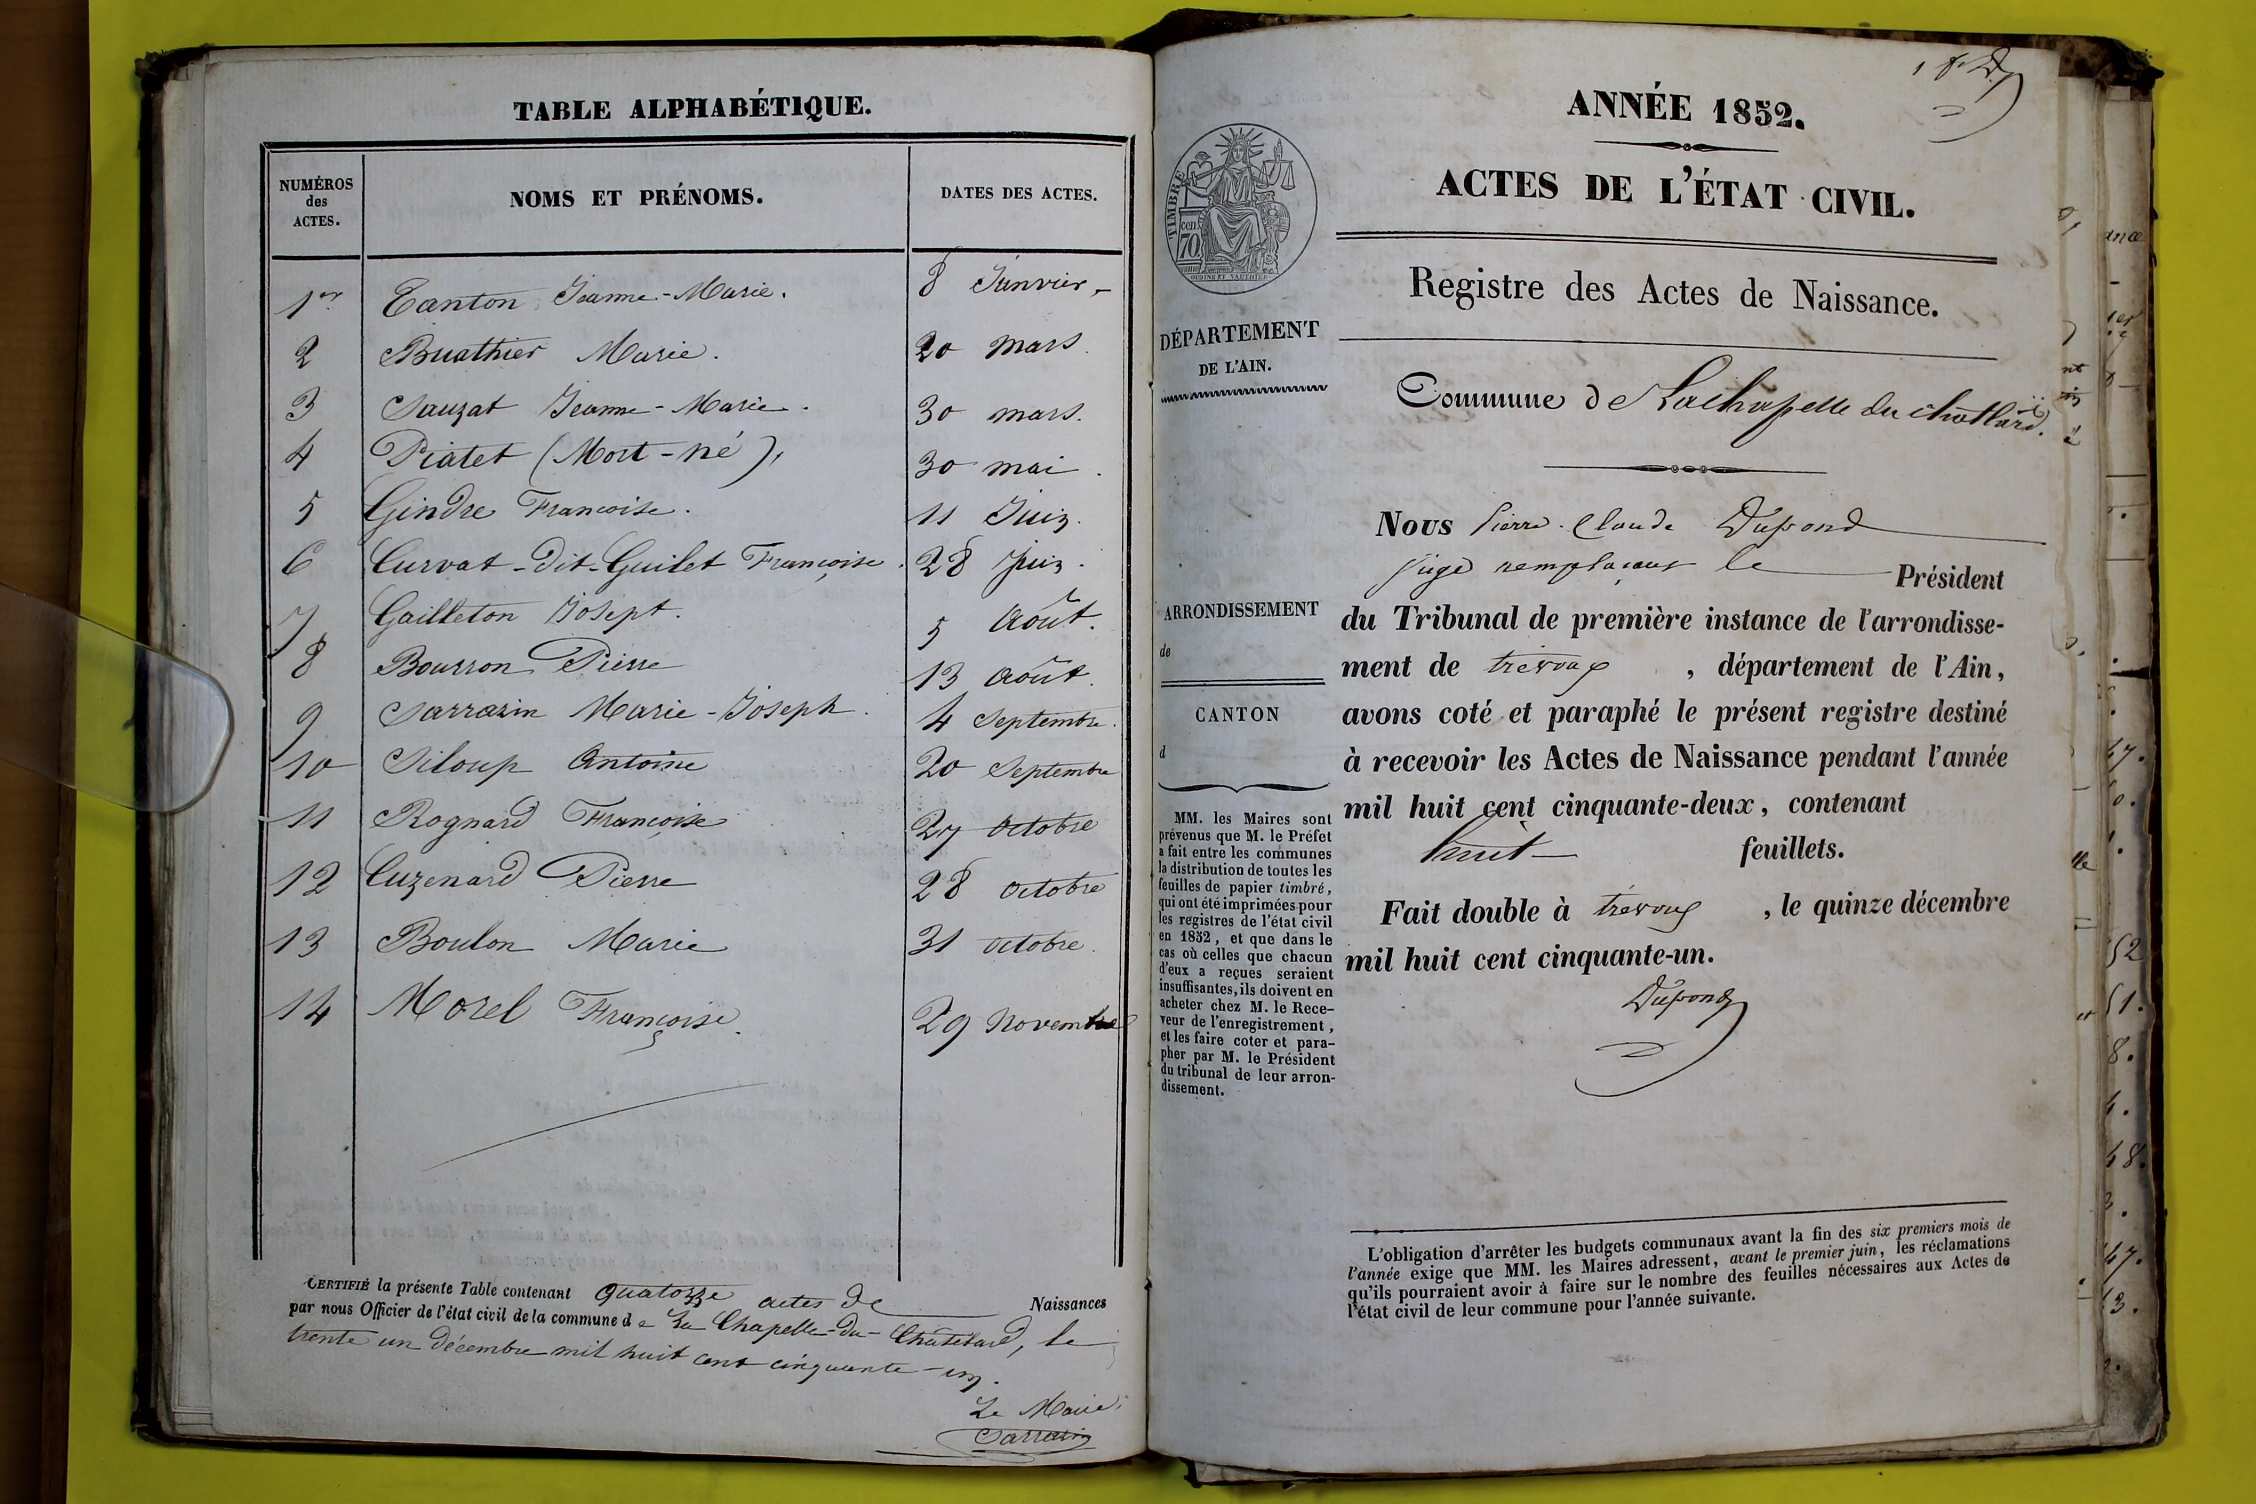 TABLE ALPHABÉTIQUE.
NUMÉROS des ACTES.
NOMS ET PRÉNOMS.
DATES DES ACTES.
1er Tanton Jeanne-Marie. 8 Janvier
2 Buathier Marie. 20 mars
3 Sauzat Jeanne-Marie. 30 mars.
4 Piatet (Mort-né), 30 mai.
5 Gindre Francoise. 11 Juin.
6 Curvat-dit-Guilet Françoise. 28 Juin.
7 Gailleton Joseph. 5 Août.
8 Bourron Pierre 13 août.
9 Sarrazin Marie-Joseph. 4 Septembre.
10 Siloup Antoine 20 Septembre
11 Rognard Françoise 27 octobre
12 Cuzenard Pierre 28 octobre
13 Boulon Marie 31 octobre.
14 Morel Françoise. 29 Novembre
CERTIFIÉ la présente Table contenant quatorze actes de Naissances
par nous Officier de l'état civil de la commune de La Chapelle-du-Châtelard, le
trente un décembre mil huit cent cinquante-un.
Le Maire,
Sarrazin
ANNÉE 1852.
ACTES DE L'ÉTAT CIVIL.
TIMBRE
70 cen.
Registre des Actes de Naissance.
DÉPARTEMENT
DE L'AIN.
Commune de Lachapelle du chatlard.
Nous Pierre Claude Dupond
juge remplaçant le Président
ARRONDISSEMENT
de
du Tribunal de première instance de l'arrondisse-
ment de trévoux, département de l'Ain,
CANTON
d
avons coté et paraphé le présent registre destiné
à recevoir les Actes de Naissance pendant l'année
mil huit cent cinquante-deux, contenant
huit feuillets.
Fait double à trévoux, le quinze décembre
mil huit cent cinquante-un.
Dupond
MM. les Maires sont
prévenus que M. le Préfet
a fait entre les communes
la distribution de toutes les
feuilles de papier timbré,
qui ont été imprimées pour
les registres de l'état civil
en 1852, et que dans le
cas où celles que chacun
d'eux a reçues seraient
insuffisantes, ils doivent en
acheter chez M. le Rece-
veur de l'enregistrement,
et les faire coter et para-
pher par M. le Président
du tribunal de leur arron-
dissement.
L'obligation d'arrêter les budgets communaux avant la fin des six premiers mois de
l'année exige que MM. les Maires adressent, avant le premier juin, les réclamations
qu'ils pourraient avoir à faire sur le nombre des feuilles nécessaires aux Actes de
l'état civil de leur commune pour l'année suivante.